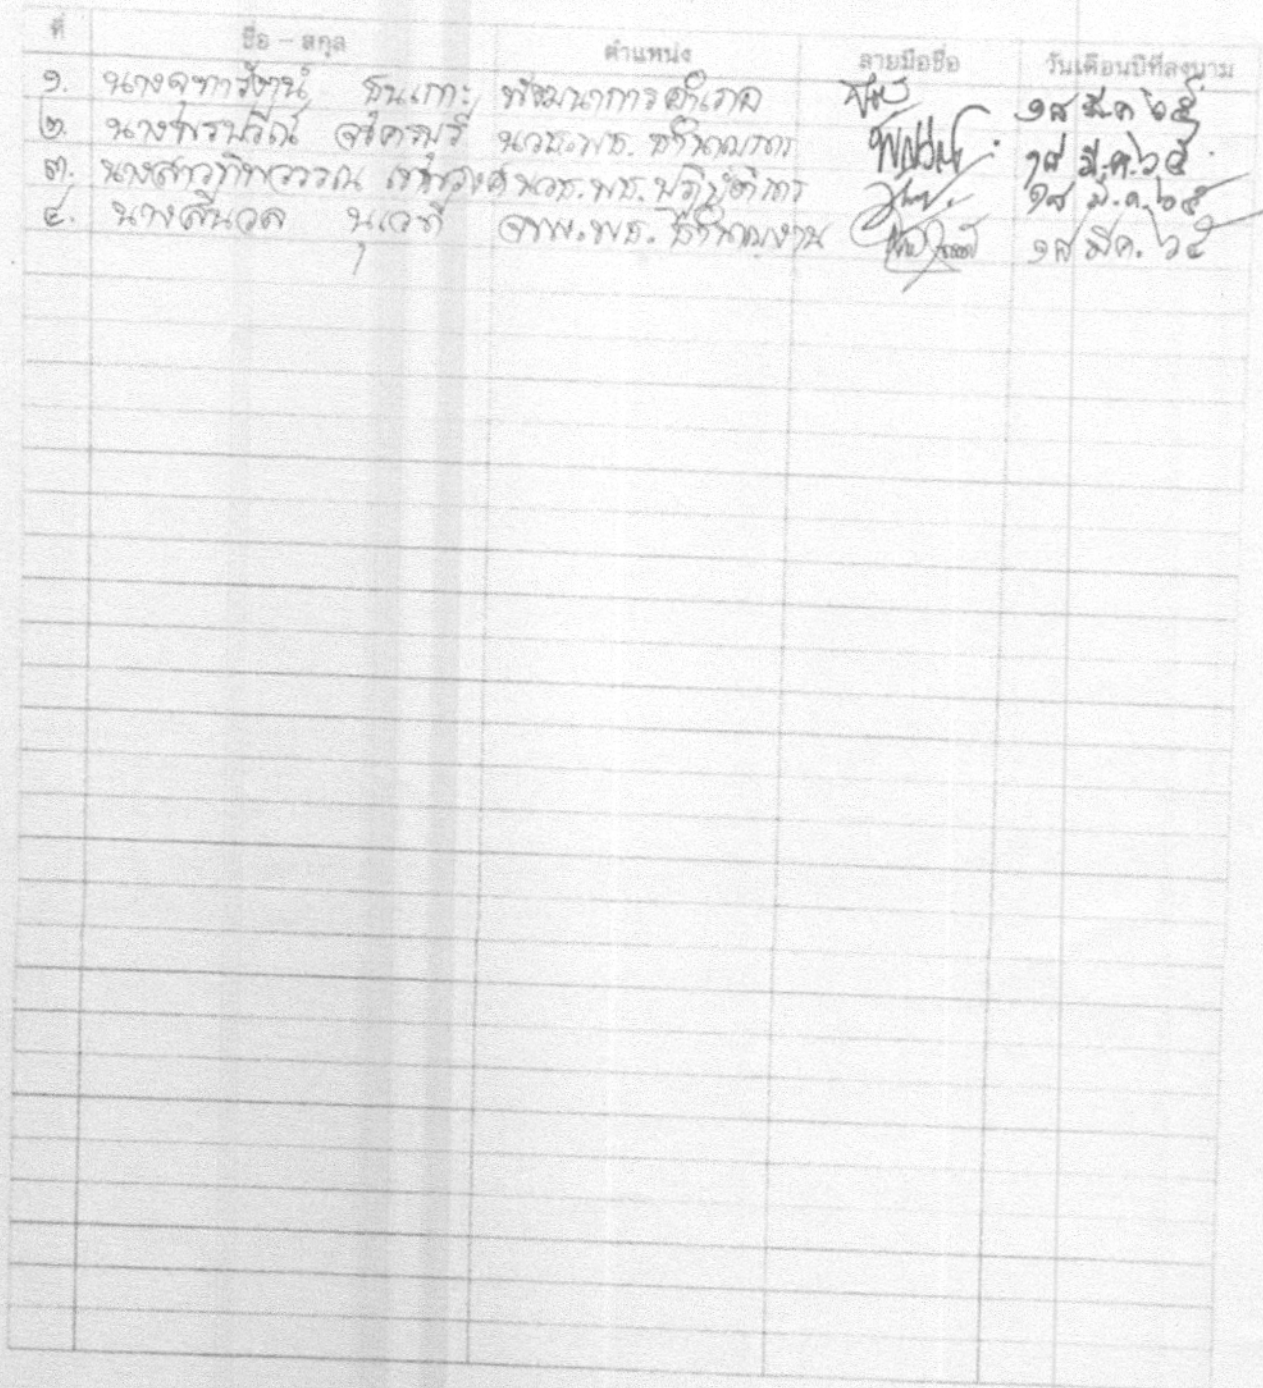 ที่ ชื่อ - สกุล ตำแหน่ง ลายมือชื่อ วันเดือนปีที่ลงนาม
๑. พัฒนาการอำเภอ ๑๘ มี.ค ๖๕
๒. นางพรปวีณ์ จักรบุรี นวช.พช. ชำนาญการ ๑๘ มี.ค. ๖๕
๓. นางสาวทิพวรรณ นวช.พช. ปฏิบัติการ ๑๘ มี.ค. ๖๕
๔. นางสีนวล จพง.พช. ชำนาญงาน ๑๘ มีค. ๖๕